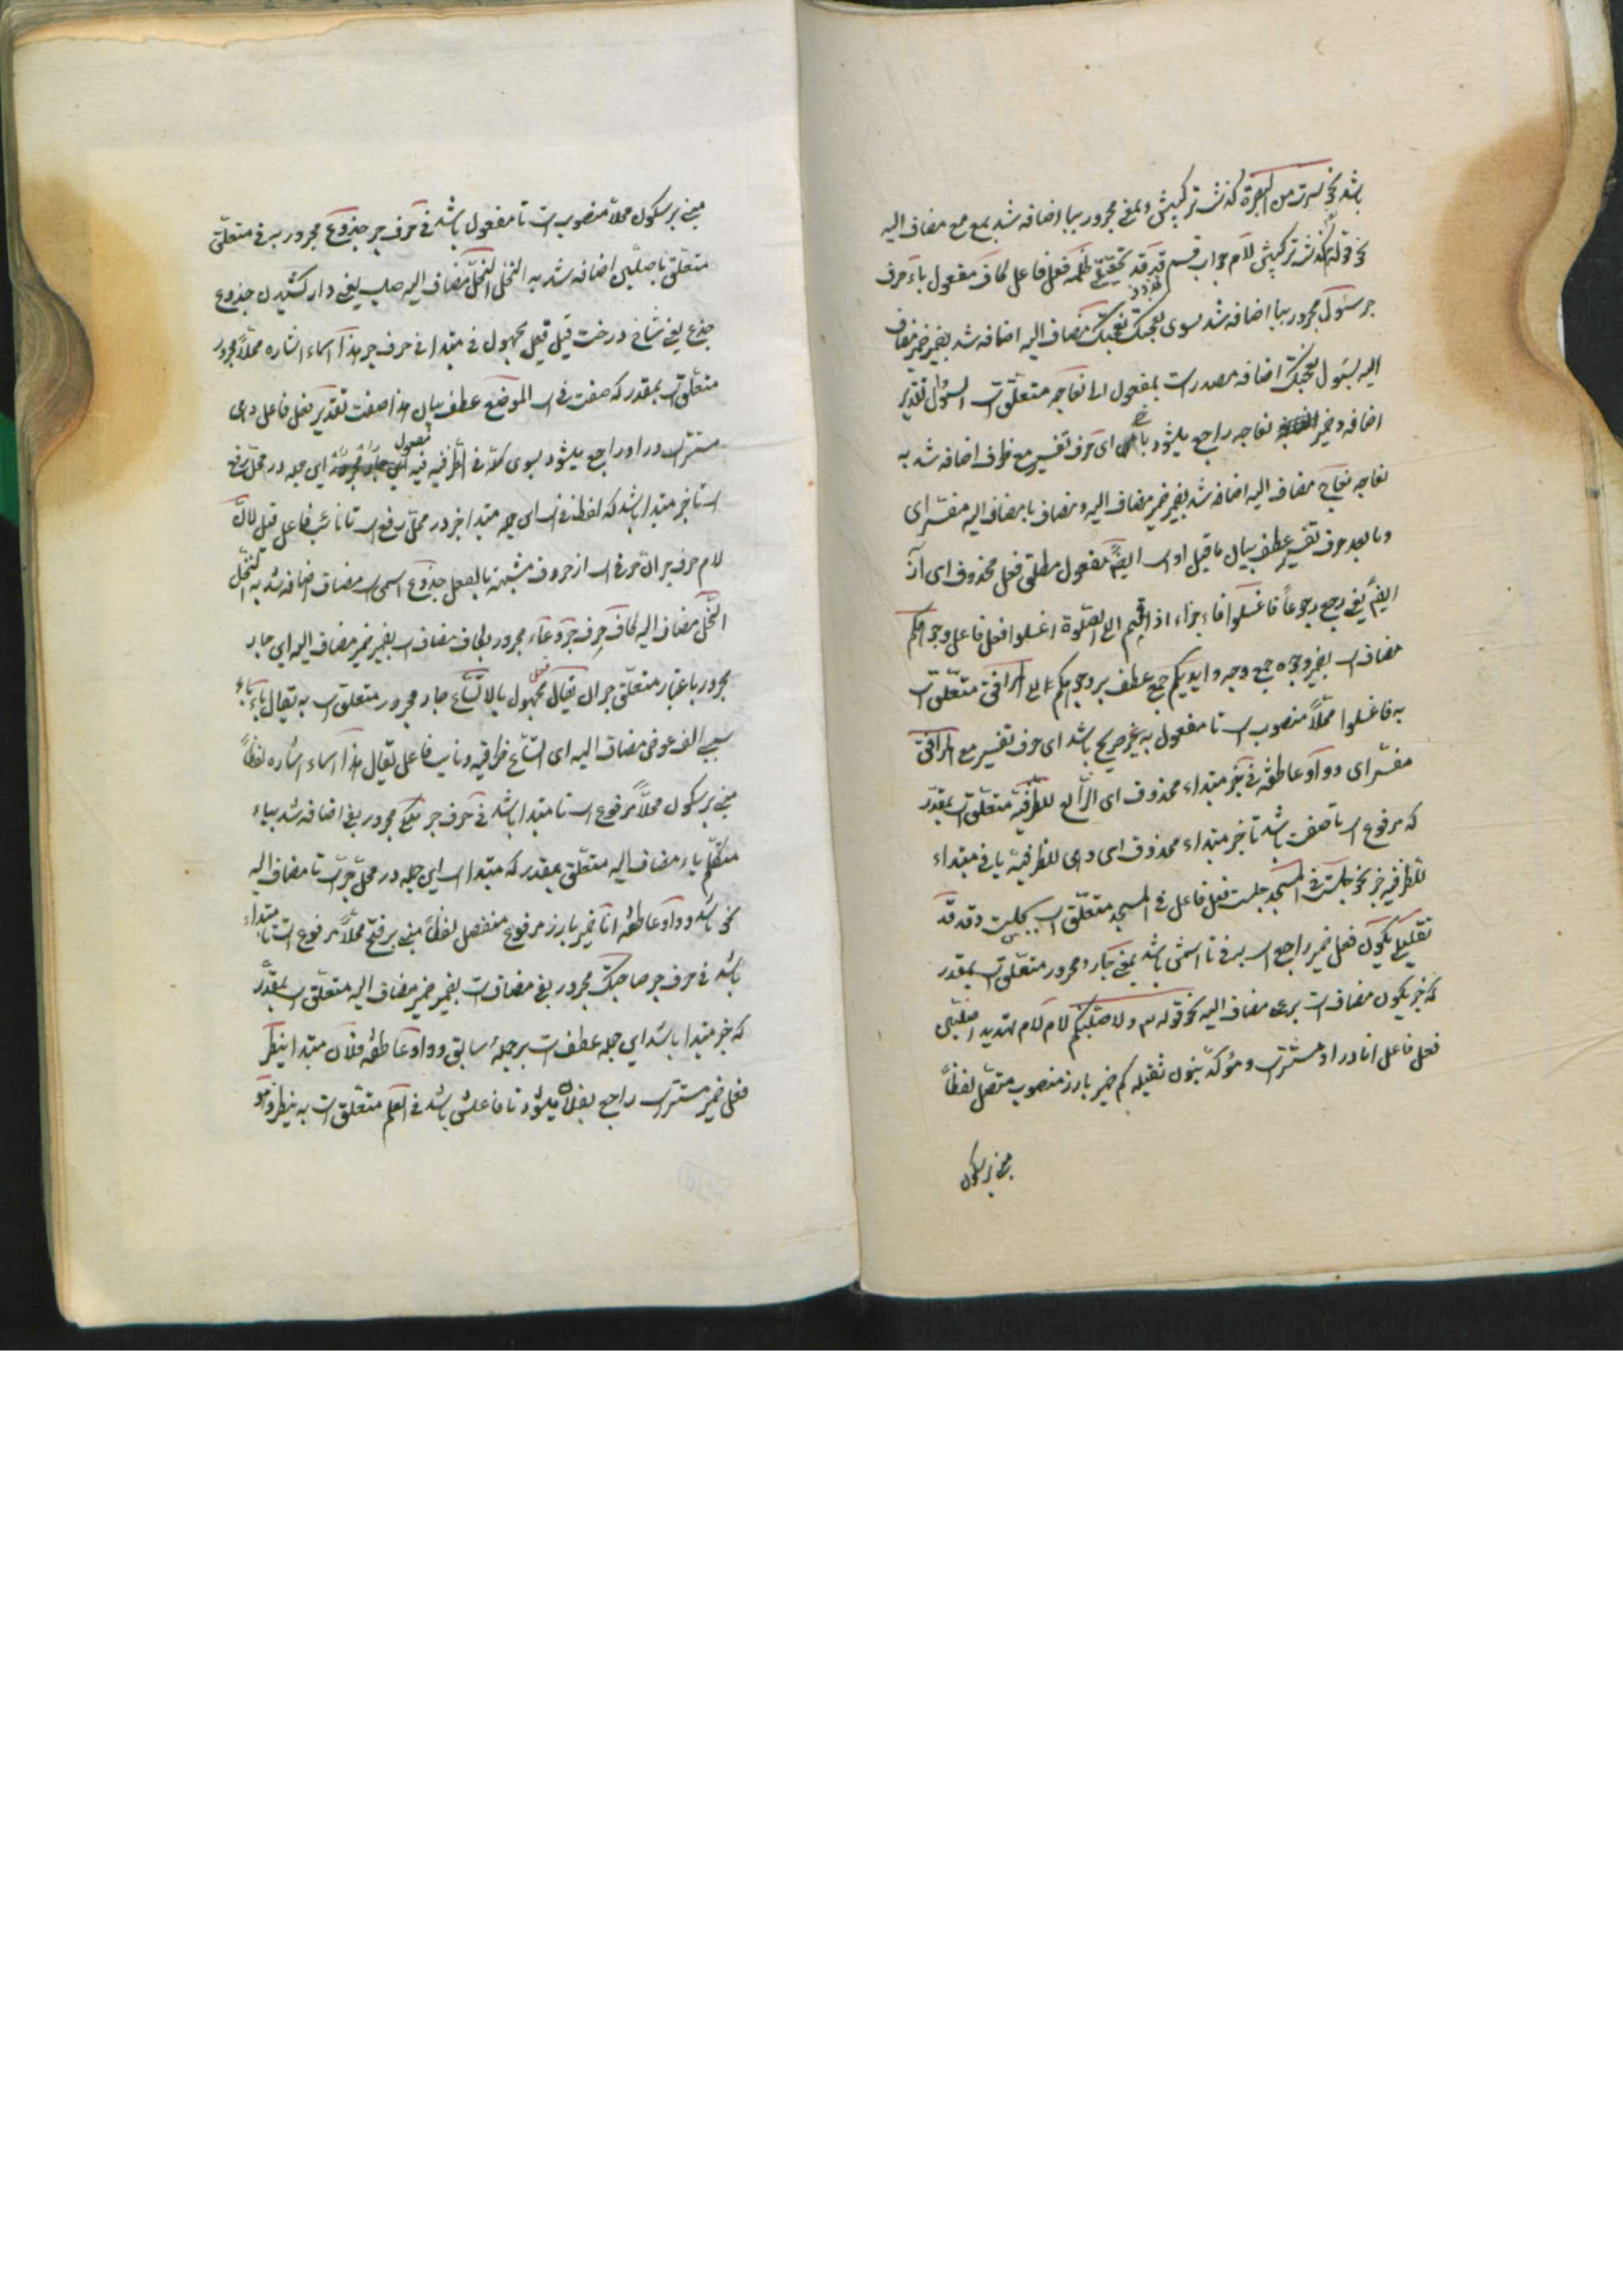 باشد نحو سرت من البصرة گذشت ترکیبش و بمعنی مجرور ببا اضافه شد بمع مع مضاف الیه
نحو قوله گذشت ترکیبش لام جواب قسم قد قد تحقیق ظلمک فعل فاعل کاف مفعول باء حرف
جر سؤال مجرور ببا اضافه شد بسوی نعجتک نعجتک مضاف الیه اضافه شد بضمیر ضمیر مضاف
الیه بسؤال نعجتک اضافه مصدرست بمفعول الی نعاجه متعلق است بسؤال بتقدیر
اضافه و ضمیر نعاجه راجع میشود ای حرف تفسیر مع ظرف اضافه شد به
نعاجه نعاج مضاف الیه اضافه شد بضمیر ضمیر مضاف الیه و مضاف با مضاف الیه مفسر ای
و ما بعد حرف تفسیر عطف بیان ماقبل او است ایضا مفعول مطلق فعل محذوف ای آض
ایضا یعنی رجع رجوعا فاغسلوا فاء جزاء اذا قمتم الی الصلوة اغسلوا فعل فاعل وجوهکم
مضاف است بضمیر وجوه جمع وجه و ایدیکم جمع عطف بر وجوهکم الی المرافق متعلق است
به فاغسلوا محلا منصوب است تا مفعول به غیر صریح باشد ای حرف تفسیر مع المرافق
مفسر ای و واو عاطفه فی خبر مبتداء محذوف ای الرابع للظرفیة متعلق است بمقدر
که مرفوع است تا صفت باشد تا خبر مبتداء محذوف ای و هی للظرفیة یا فی مبتداء
للظرفیه خبر نحو جلست فی المسجد جلست فعل فاعل فی المسجد متعلق است بجلست و قد قد
تقلیلی یکون فعل ضمیر راجع است به فی تا اسمش باشد بمعنی جار و مجرور متعلق است بمقدر
که خبر یکون مضافست بر علی مضاف الیه نحو قوله تع ولاصلبنکم لام لام تهدید اصلبن
فعل فاعل انا در او مستتر است و مؤکد بنون ثقیله کم ضمیر بارز منصوب متصل لفظا
مبنی بر سکون
مبنی بر سکون محلا منصوبست تا مفعول باشد فی حرف جر جذوع مجرور به فی متعلق
متعلق باصلبن اضافه شد به النخل النخل مضاف الیه صلب یعنی دار کشیدن جذوع
جذع یعنی شاخ درخت قیل فعل مجهول فی مبتدا فی حرف جر هذا اسماء اشاره محلا مجرور
متعلق است بمقدر که صفت فی است الموضع عطف بیان هذا صفت تقدیر فعل فاعل و هی
مستتر است در او راجع میشود بسوی کلمه فی الظرفیة مفعول فیه این جمله در محل رفع
است تا خبر مبتدا باشد که لفظ فی است این جمله مبتدا خبر در محل رفع است تا نائب فاعل قیل لان
لام حرف جر ان حرفی است از حروف مشبهة بالفعل جذوع اسم ان مضاف اضافه شد به النخل
النخل مضاف الیه کاف حرف جر وعاء مجرور بکاف مضاف است بضمیر ضمیر مضاف الیه این جار
مجرور باعتبار متعلق خبر ان یقال فعل مجهول بالاتساع جار مجرور متعلق است به یقال باء باء
سببی الف عوض مضاف الیه ای اتساع ظرفیه و نایب فاعل یقال هذا اسماء اشاره لفظا
مبنی بر سکون محلا مرفوع است تا مبتدا باشد فی حرف جر ملکی مجرور بفی اضافه شد بیاء
متکلم یاء مضاف الیه متعلق بمقدر که مبتدا است این جمله در محل جر است تا مضاف الیه
نحو باشد و واو عاطفه انا ضمیر بارز مرفوع منفصل لفظا مبنی بر فتح محلا مرفوع است تا مبتداء
باشد فی حرف جر صاحبک مجرور بفی مضافست بضمیر ضمیر مضاف الیه متعلق است بمقدر
که خبر مبتدا باشد این جمله عطفست بر جملهٔ سابق و واو عاطفه فلان مبتدا ینظر
فعل ضمیر مستتر است راجع بفلان میشود تا فاعلش باشد فی العلم متعلق است به ینظر و هو